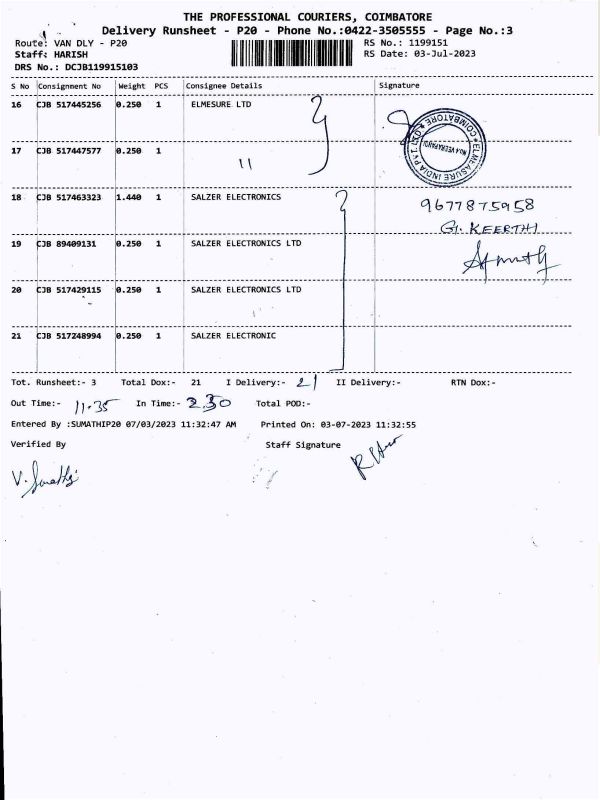 THE PROFESSIONAL COURIERS, COIMBATORE
Delivery Runsheet - P20 - Phone No.:0422-3505555 - Page No.:3
Route: VAN DLY - P20
RS No.: 1199151
Staff: HARISH
RS Date: 03-Jul-2023
DRS No.: DCJB119915103
S No Consignment No Weight PCS Consignee Details Signature
16 CJB 517445256 0.250 1 ELMESURE LTD
COIMBATORE
ELMEASURE INDIA PVT LTD
17 CJB 517447577 0.250 1 11
18 CJB 517463323 1.440 1 SALZER ELECTRONICS
9677875958
G. KEERTHI
19 CJB 89409131 0.250 1 SALZER ELECTRONICS LTD
20 CJB 517429115 0.250 1 SALZER ELECTRONICS LTD
21 CJB 517248994 0.250 1 SALZER ELECTRONIC
Tot. Runsheet:- 3 Total Dox:- 21 I Delivery:- 21 II Delivery:- RTN Dox:-
Out Time:- 11.35 In Time:- 2.30 Total POD:-
Entered By :SUMATHIP20 07/03/2023 11:32:47 AM Printed On: 03-07-2023 11:32:55
Verified By Staff Signature
V. Sumathi